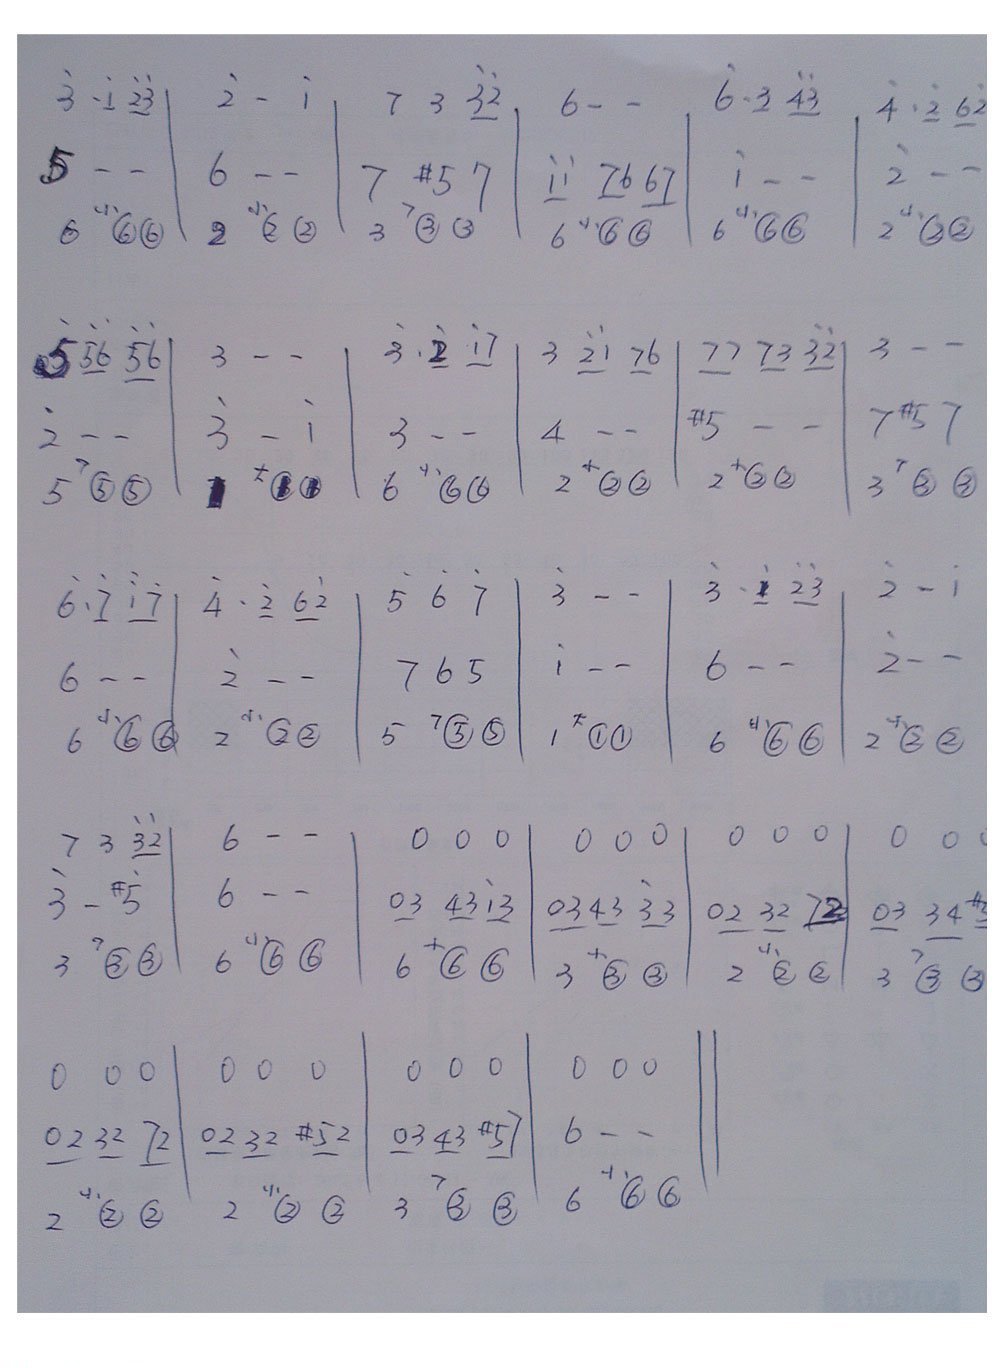 3̇ · 1̇ 2̇3̇ | 2̇ - 1̇ | 7 3 3̇2̇ | 6 - - | 6̇ · 3 4̇3̇ | 4̇ · 2̇ 62̇
5 - - | 6 - - | 7 #5 7 | 1̇1̇ 76 67 | 1̇ - - | 2̇ - -
6 小⑥⑥ | 2 小②② | 3 7③③ | 6 小⑥⑥ | 6 小⑥⑥ | 2 小②②
5̇ 5̇6̇ 5̇6̇ | 3 - - | 3̇ · 2̇ 1̇7 | 3 2̇1̇ 76 | 77 73 3̇2̇ | 3 - -
2̇ - - | 3̇ - 1̇ | 3 - - | 4 - - | #5 - - | 7 #5 7
5 7⑤⑤ | 1 大①① | 6 小⑥⑥ | 2 ②② | 2 ②② | 3 7③③
6̇ · 7̇ 1̇7̇ | 4̇ · 2̇ 62̇ | 5̇ 6̇ 7̇ | 3̇ - - | 3̇ · 1̇ 2̇3̇ | 2̇ - 1̇
6 - - | 2̇ - - | 7 6 5 | 1̇ - - | 6 - - | 2̇ - -
6 小⑥⑥ | 2 小②② | 5 7⑤⑤ | 1 大①① | 6 小⑥⑥ | 2 小②②
7 3 3̇2̇ | 6 - - | 0 0 0 | 0 0 0 | 0 0 0 | 0 0 0
3̇ - #5̇ | 6 - - | 03 43 1̇3 | 03 43 3̇3 | 02 32 72 | 03 34
3 7③③ | 6 小⑥⑥ | 6 ⑥⑥ | 3 ③③ | 2 小②② | 3 7③③
0 0 0 | 0 0 0 | 0 0 0 | 0 0 0 ‖
02 32 72 | 02 32 #52 | 03 43 #57 | 6 - -
2 小②② | 2 小②② | 3 7③③ | 6 小⑥⑥